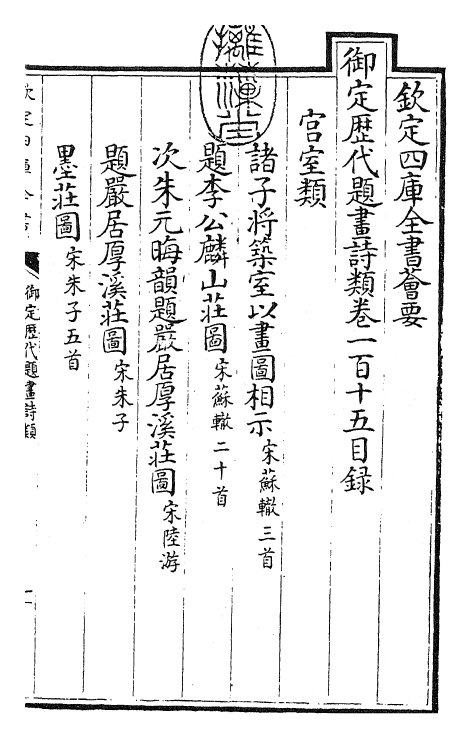 欽定四庫全書薈要
御定歴代題畫詩類卷一百十五目録
宫室類
諸子將築室以畫圖相示宋蘇轍三首
題李公麟山莊圖宋蘇轍二十首
次朱元晦韻題嚴居厚溪莊圖宋陸游
題嚴居厚溪莊圖宋朱子
墨莊圖宋朱子五首
御定歴代題畫詩類
一